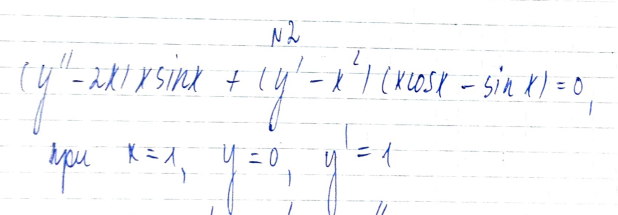 N2
(y'' - 2x) x sinx + (y' - x²) (xcosx - sin x) = 0,
при x = 1, y = 0, y' = 1